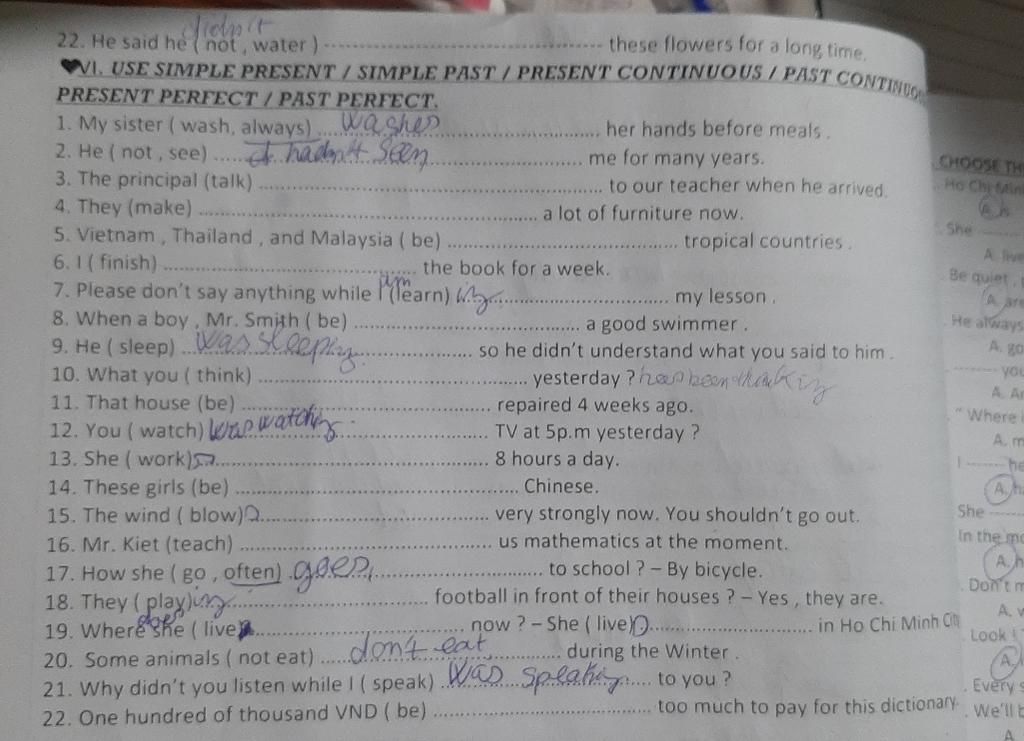 didn't
22. He said he ( not , water ) ---------------------------------------- these flowers for a long time.
♥VI. USE SIMPLE PRESENT / SIMPLE PAST / PRESENT CONTINUOUS / PAST CONTINUO
PRESENT PERFECT / PAST PERFECT.
1. My sister ( wash, always) ....washes........................ her hands before meals .
2. He ( not , see) ...... hadn't seen........................ me for many years.
3. The principal (talk) ............................................................ to our teacher when he arrived.
4. They (make) ............................................................ a lot of furniture now.
5. Vietnam , Thailand , and Malaysia ( be) ........................................ tropical countries .
6. I ( finish) ............................................ the book for a week.
7. Please don't say anything while I am (learn) ing................................ my lesson .
8. When a boy , Mr. Smith ( be) ........................................ a good swimmer .
9. He ( sleep) ..was sleeping.................... so he didn't understand what you said to him .
10. What you ( think) ................................................ yesterday ? has been thinking
11. That house (be) ............................................ repaired 4 weeks ago.
12. You ( watch) was watching........................ TV at 5p.m yesterday ?
13. She ( work)................................................ 8 hours a day.
14. These girls (be) .................................................. Chinese.
15. The wind ( blow)........................................ very strongly now. You shouldn't go out.
16. Mr. Kiet (teach) ............................................ us mathematics at the moment.
17. How she ( go , often) .goes.............................. to school ? – By bicycle.
18. They ( play)ing.................................... football in front of their houses ? – Yes , they are.
19. Where does she ( live)........................................ now ? – She ( live)............................ in Ho Chi Minh City
20. Some animals ( not eat) .....don't eat............ during the Winter .
21. Why didn't you listen while I ( speak) .was speaking..... to you ?
22. One hundred of thousand VND ( be) ........................................ too much to pay for this dictionary.
CHOOSE TH
Ho Chi Min
A. is
She --------
A. live
Be quiet ,
A. are
He always
A. go
-------- you
A. Ar
" Where
A. m
I ------- he
A. h
She ------
In the mo
A. h
Don't m
A. w
Look !
A.
Every s
We'll b
A